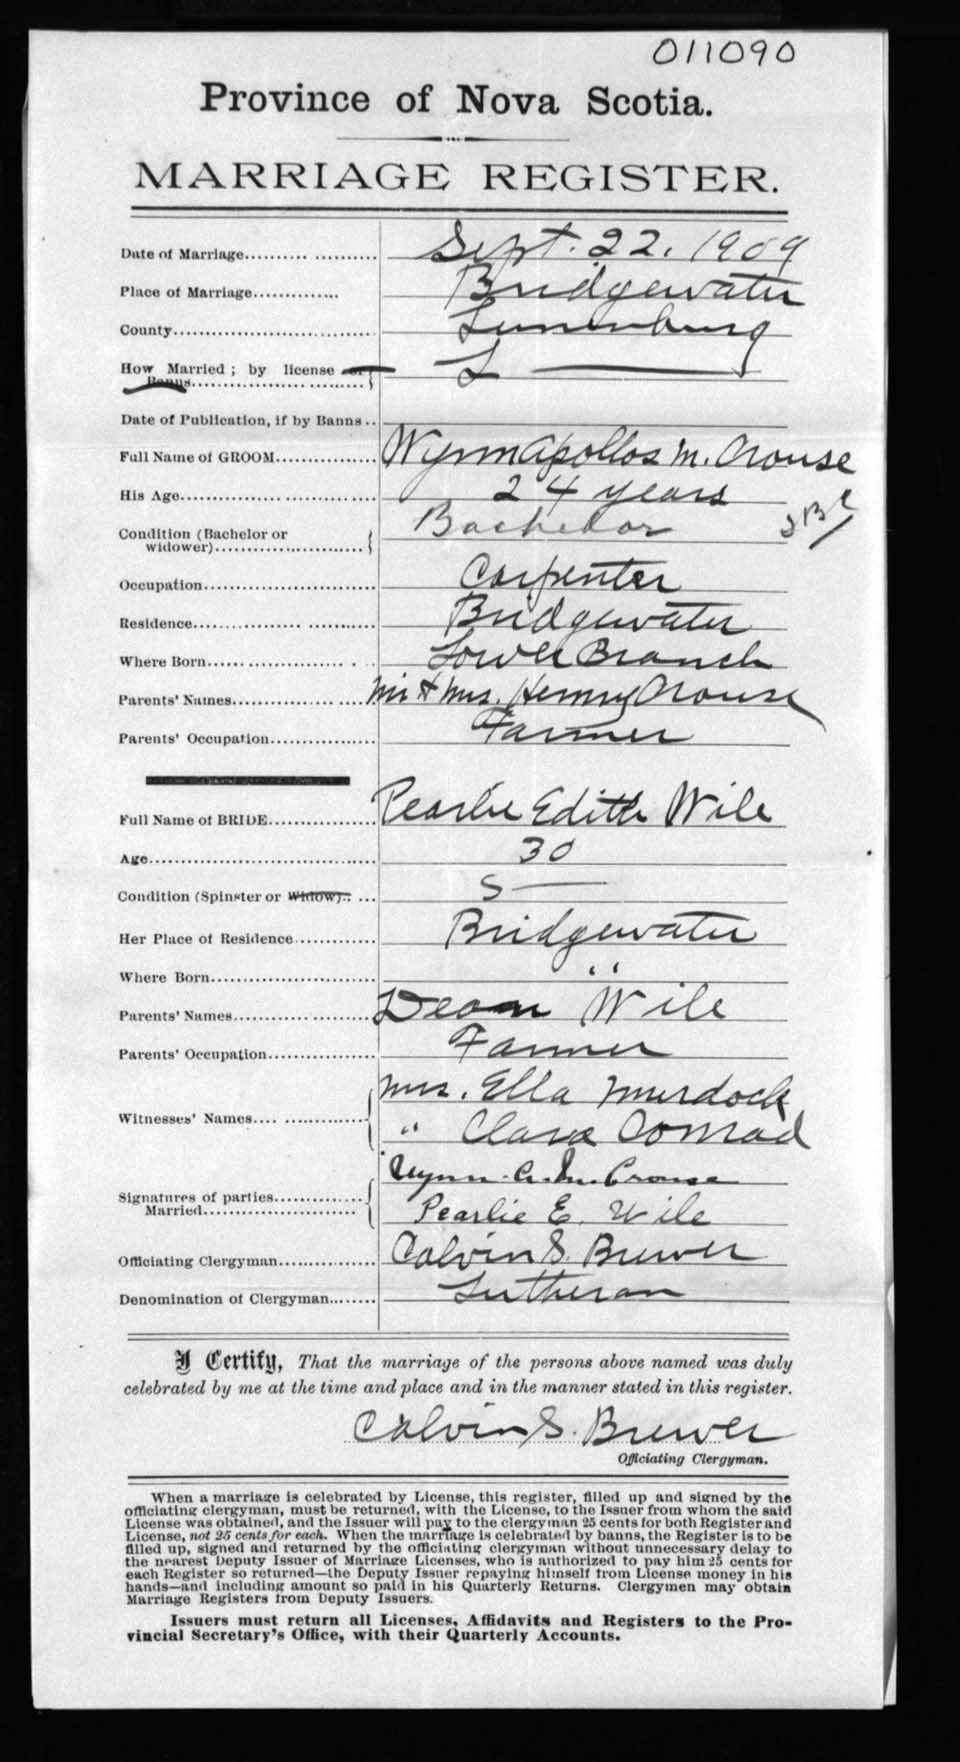 011090
Province of Nova Scotia.
MARRIAGE REGISTER.
Date of Marriage.......... ........... Sept. 22. 1909
Place of Marriage............. Bridgewater
County............................. Lunenburg
How Married ; by license or L
Banns..................................
Date of Publication, if by Banns ..
Full Name of GROOM............... Wynn Apollos M. Crouse
His Age............................ 24 years
Condition (Bachelor or Bachelor
widower)........................
Occupation......................... Carpenter
Residence.......................... Bridgewater
Where Born......................... Lower Branch
Parents' Names..................... Mr & Mrs. Henry Crouse
Parents' Occupation................ Farmer
Full Name of BRIDE................. Pearlie Edith Wile
Age................................ 30
Condition (Spinster or Widow).. ... S
Her Place of Residence............. Bridgewater
Where Born......................... "
Parents' Names..................... Dean Wile
Parents' Occupation................ Farmer
Mrs. Ella Murdock
Witnesses' Names.... ..............
" Clara Conrad
Wynn A. M. Crouse
Signatures of parties..............
Married........................
Pearlie E. Wile
Officiating Clergyman.............. Calvin S. Brewer
Denomination of Clergyman........ Lutheran
I Certify, That the marriage of the persons above named was duly
celebrated by me at the time and place and in the manner stated in this register.
Calvin S. Brewer
Officiating Clergyman.
When a marriage is celebrated by License, this register, filled up and signed by the
officiating clergyman, must be returned, with the License, to the Issuer from whom the said
License was obtained, and the Issuer will pay to the clergyman 25 cents for both Register and
License, not 25 cents for each. When the marriage is celebrated by banns, the Register is to be
filled up, signed and returned by the officiating clergyman without unnecessary delay to
the nearest Deputy Issuer of Marriage Licenses, who is authorized to pay him 25 cents for
each Register so returned—the Deputy Issuer repaying himself from License money in his
hands—and including amount so paid in his Quarterly Returns. Clergymen may obtain
Marriage Registers from Deputy Issuers.
Issuers must return all Licenses, Affidavits and Registers to the Pro-
vincial Secretary's Office, with their Quarterly Accounts.